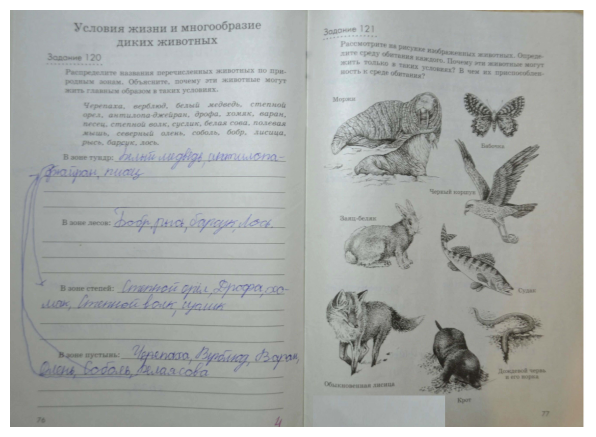 Условия жизни и многообразие
диких животных
Задание 120
Распределите названия перечисленных животных по при-
родным зонам. Объясните, почему эти животные могут
жить главным образом в таких условиях.
Черепаха, верблюд, белый медведь, степной
орел, антилопа-джейран, дрофа, хомяк, варан,
песец, степной волк, суслик, белая сова, полевая
мышь, северный олень, соболь, бобр, лисица,
рысь, барсук, лось.
В зоне тундр: белый медведь, антилопа-
джайран, писец
В зоне лесов: Бобр, рысь, барсук, Лось.
В зоне степей: Степной орел, Дрофа, хо-
мяк, Степной волк, суслик
В зоне пустынь: Черепаха, Верблюд, Варан,
Олень, Соболь, Белая сова
76
4
Задание 121
Рассмотрите на рисунке изображенных животных. Опреде-
лите среду обитания каждого. Почему эти животные могут
жить только в таких условиях? В чем их приспособлен-
ность к среде обитания?
Моржи
Бабочка
Черный коршун
Заяц-беляк
Судак
Обыкновенная лисица
Дождевой червь
в его норка
Крот
77